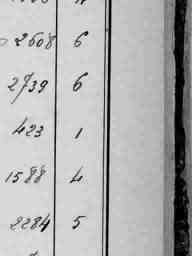 2608 6
2739 6
423 1
1588 4
2284 5